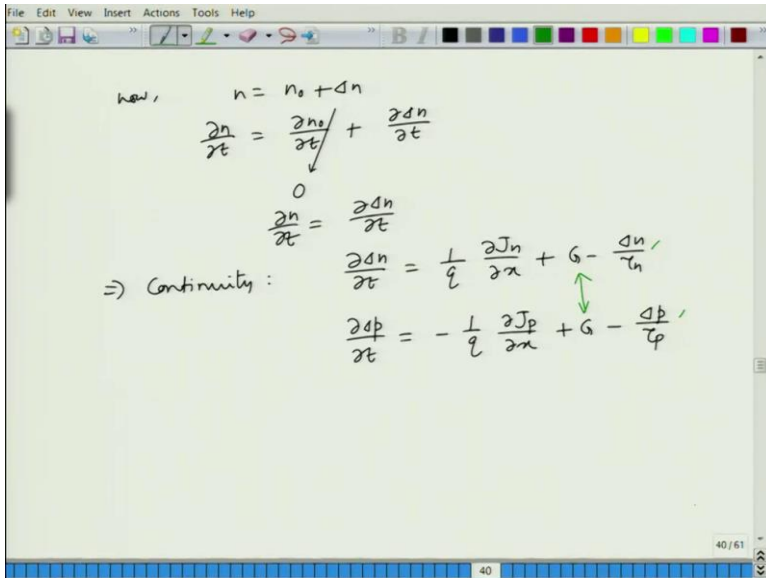 File Edit View Insert Actions Tools Help
now, n = n₀ + Δn
∂n/∂t = ∂n₀/∂t + ∂Δn/∂t
0
∂n/∂t = ∂Δn/∂t
⇒ Continuity : ∂Δn/∂t = 1/q ∂Jn/∂x + G - Δn/τn
∂Δp/∂t = - 1/q ∂Jp/∂x + G - Δp/τp
40/61
40